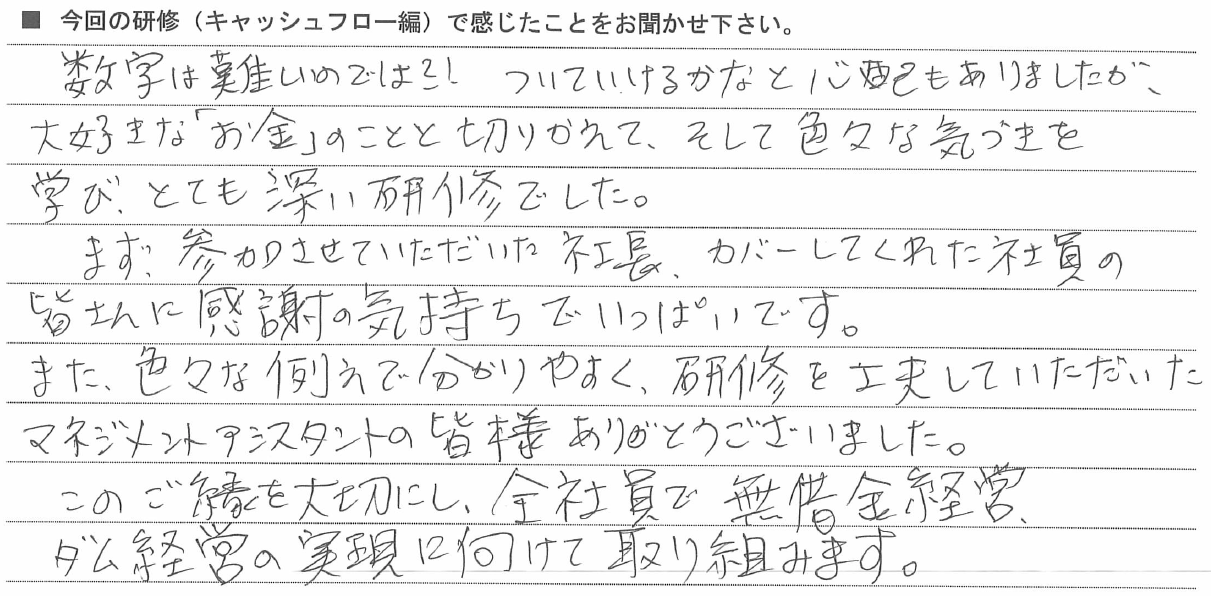 ■ 今回の研修（キャッシュフロー編）で感じたことをお聞かせ下さい。
数字は難しいのでは?! ついていけるかなと心配もありましたが、
大好きな「お金」のことと切りかえて、そして色々な気づきを
学び、とても深い研修でした。
まず、参加させていただいた社長、カバーしてくれた社員の
皆さんに感謝の気持ちでいっぱいです。
また、色々な例えで分かりやすく、研修を工夫していただいた
マネジメントアシスタントの皆様ありがとうございました。
このご縁を大切にし、全社員で無借金経営、
ダム経営の実現に向けて取り組みます。